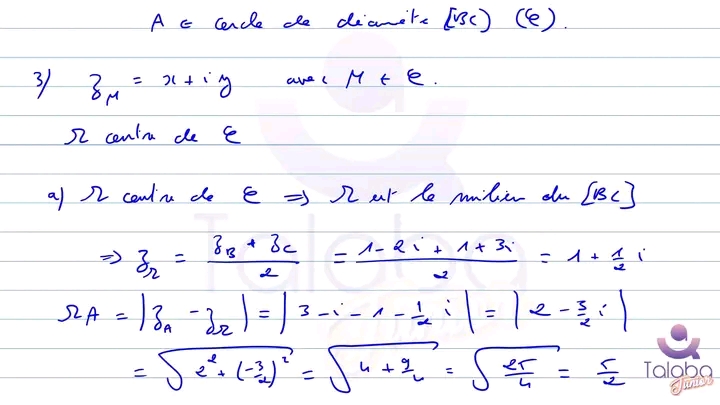 A ∈ cercle de diamètre [BC] (𝒞).
3) z_M = x + iy avec M ∈ 𝒞.
Ω centre de 𝒞
a) Ω centre de 𝒞 ⇒ Ω est le milieu du [BC]
⇒ z_Ω = (z_B + z_C)/2 = (1 - 2i + 1 + 3i)/2 = 1 + 1/2 i
ΩA = |z_A - z_Ω| = |3 - i - 1 - 1/2 i| = |2 - 3/2 i|
= √(2² + (-3/2)²) = √(4 + 9/4) = √(25/4) = 5/2
Talaba
Junior
Talaba
Junior